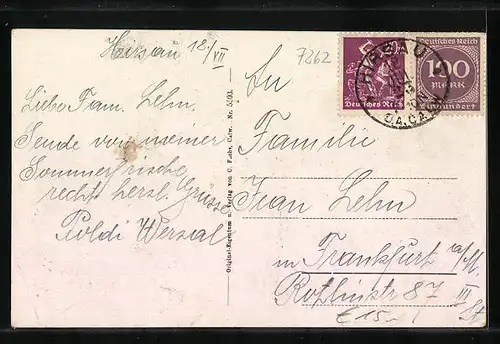 Hirsau 18./VII
7362
Liebe Fam. Lehn,
Sende von meiner
Sommerfrische
recht herzl. Grüsse
Poldi Wersal
Original-Eigentum u. Verlag von C. Fuchs, Calw. Nr. 5503.
Deutsches Reich
Deutsches Reich
100
MARK
Einhundert
HIRSAU
OA.CA
An
Familie
Jean Lehn
in Frankfurt a/M.
Rothlintstr 87 III
St
€15.-